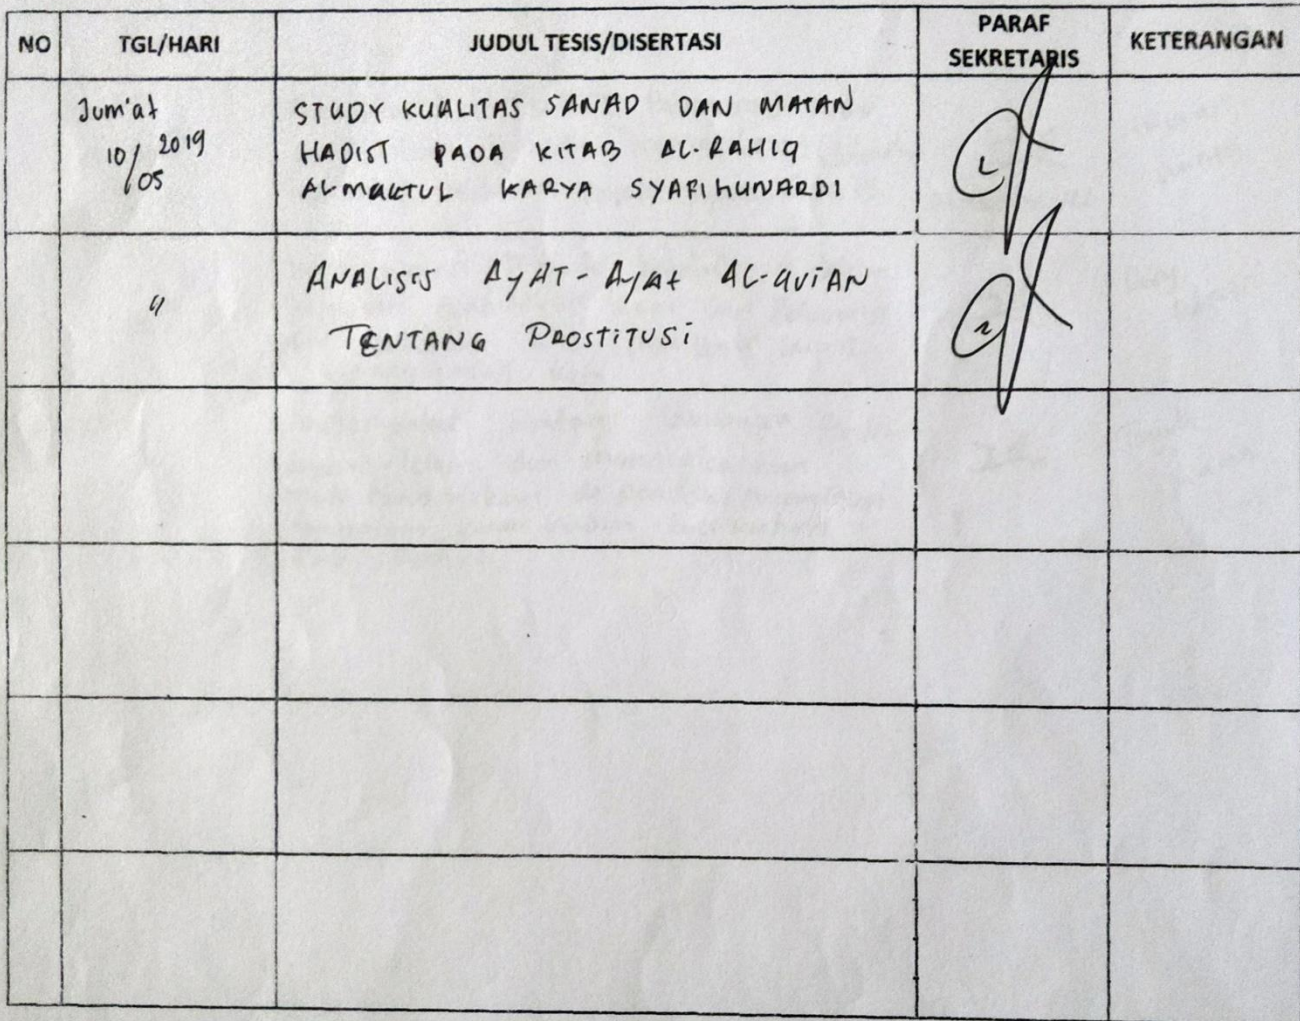 NO TGL/HARI JUDUL TESIS/DISERTASI PARAF SEKRETARIS KETERANGAN
Jum'at
10/05 2019
STUDY KUALITAS SANAD DAN MATAN
HADIST PADA KITAB AL-RAHIQ
AL-MAKTUL KARYA SYAFIHUNARDI
"
ANALISIS AyAT-AyAt AL-QUIAN
TENTANG PROSTITUSi